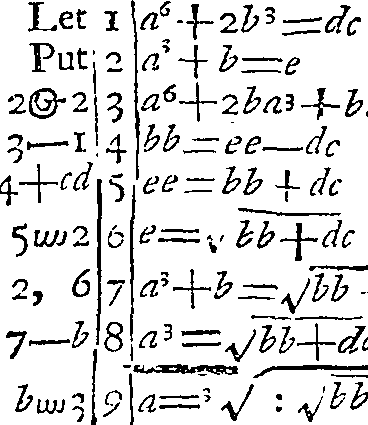 Let 1 a⁶ + 2b³ = dc
Put 2 a³ + b = e
2 G 2 3 a⁶ + 2ba³ + b.
3 — 1. 4 bb = ee — dc
4 + cd 5 ee = bb + dc
5 ɯ 2 6 e = √ bb + dc
2, 6 7 a³ + b = √bb
7 — b 8 a³ = √bb + dc
b ɯ 3 9 a = ³√ : √bb